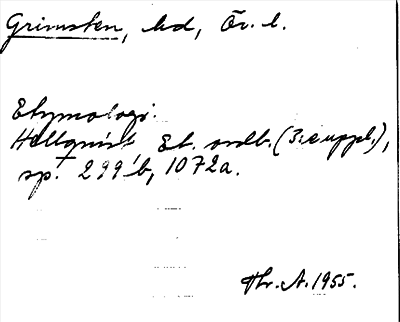 Grimsten, hd, Ör. l.
Etymologi:
Hellquist Et. ordb. (3:e uppl.),
sp. 299 b, 1072a.
Hr. A. 1955.